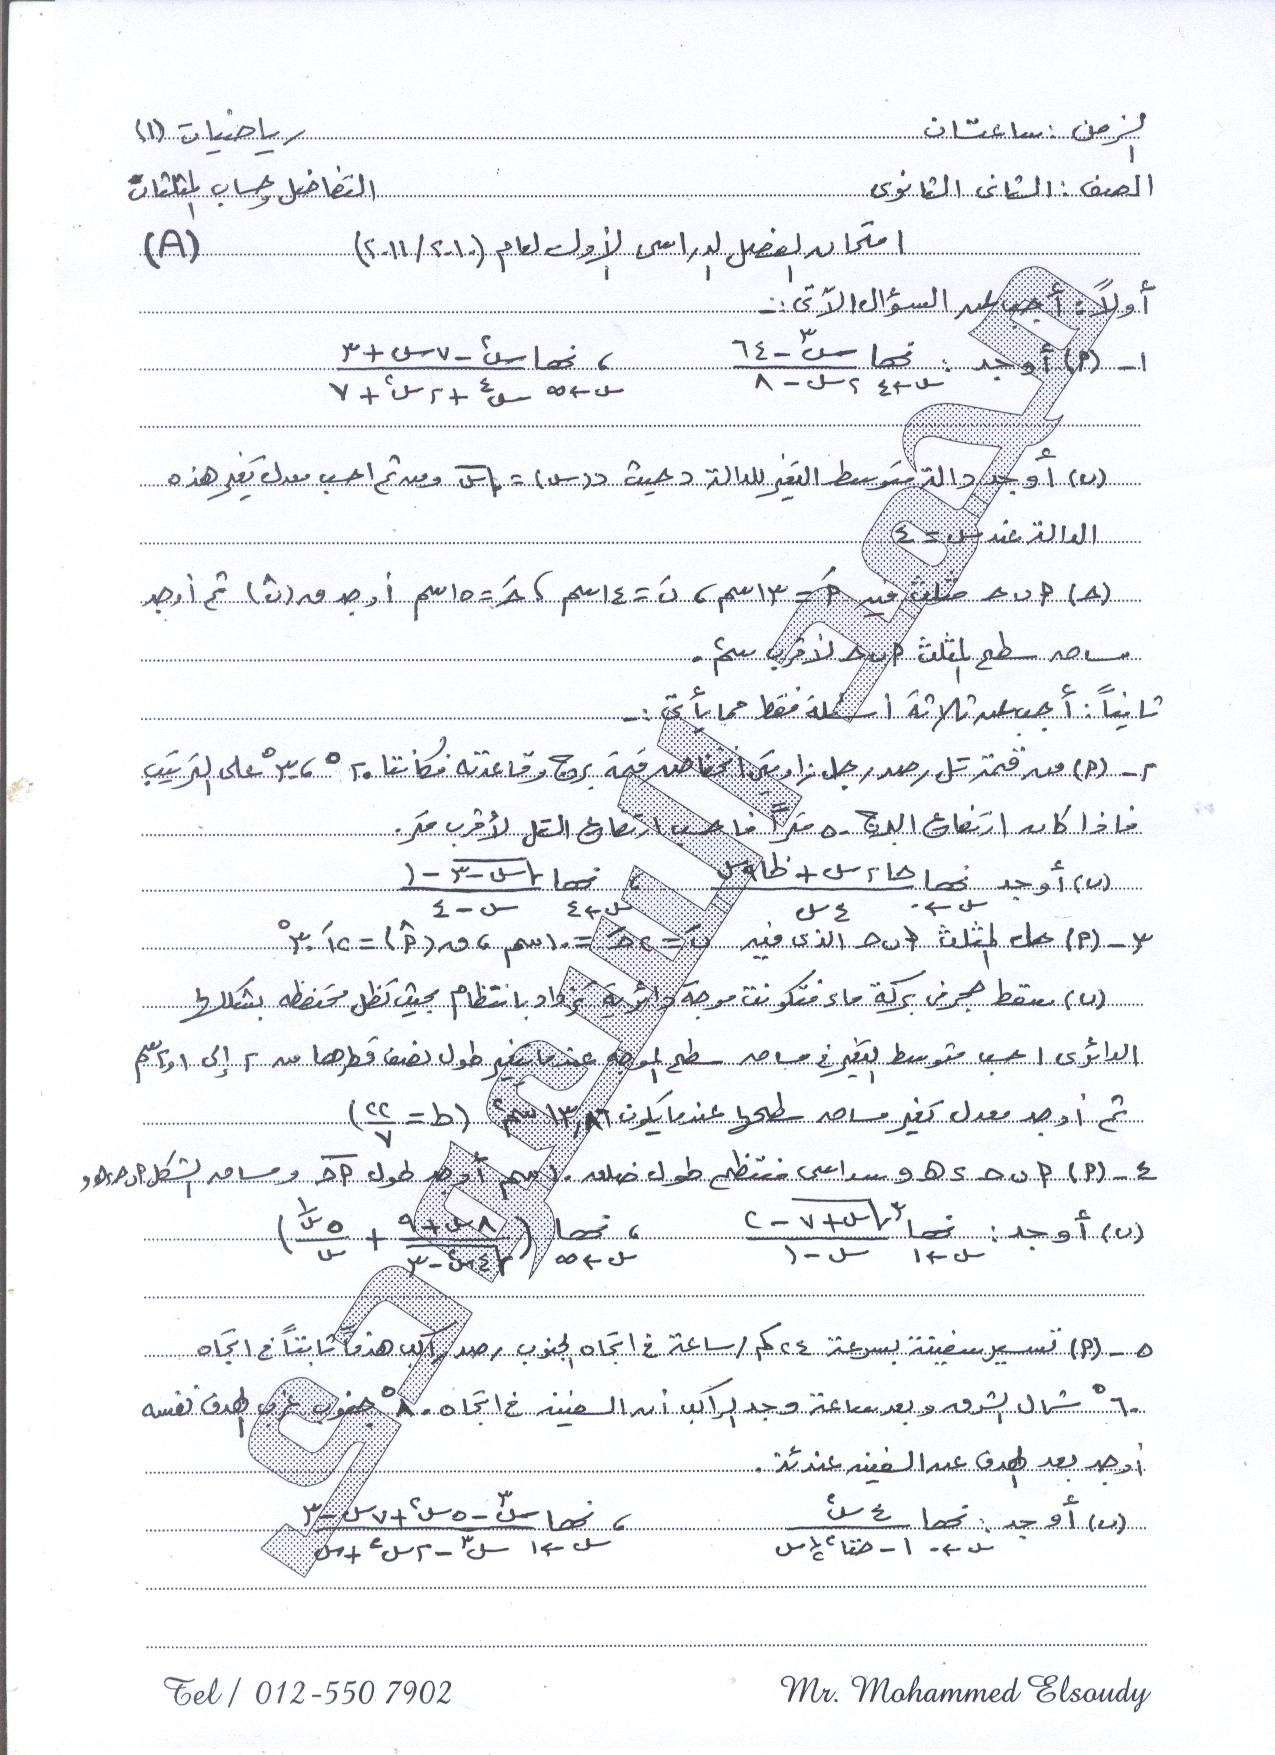 الزمن : ساعتان
رياضيات (١)
الصف : الثانى الثانوى
التفاضل وحساب المثلثات
امتحان الفصل الدراسى الأول لعام (٢٠١٠/٢٠١١)
(A)
أولاً : أجب عن السؤال الآتى :-
١- (P) أوجد : نهـا س←٤ (س³ - ٦٤)/(٢س - ٨) ، نهـا س←∞ (س² - ٧س + ٣)/(س⁴ + ٢س² + ٧)
(ب) أوجد دالة متوسط التغير للدالة د حيث د(س) = √س ومن ثم احسب معدل تغير هذه
الدالة عند س = ٤
(حـ) P ب حـ مثلث فيه Ṕ = ١٣ سم ، بَ = ١٤ سم ، حـَ = ١٥ سم أوجد ق (ب̂) ثم أوجد
مساحه سطح المثلث P ب حـ لأقرب سم² .
ثانياً : أجب عن ثلاثة أسئلة فقط مما يأتى :-
٢- (P) من قمة تل رصد رجل زاويتى انخفاض قمة برج وقاعدته فكانتا ٢٠° ، ٣٠° على الترتيب
فاذا كان ارتفاع البرج ٥٠ متراً فاحسب ارتفاع التل لأقرب متر .
(ب) أوجد نهـا س←٠ (حا٢س + طا٩س)/(٤س) ، نهـا س←٤ (√(س-٣) - ١)/(س - ٤)
٣- (P) حل المثلث P ب حـ الذى فيه بَ = ٢حـَ = ١٠ سم ، ق (P̂) = ١٢َ ٣٠°
(ب) سقط حجر فى بركة ماء فتكونت موجة دائرية تزداد بانتظام بحيث تظل محتفظه بشكلها
الدائرى احسب متوسط التغير فى مساحه سطح الموجه عندما يتغير طول نصف قطرها من ٢ إلى ٢,١ سم
ثم أوجد معدل تغير مساحه سطحها عندما يكون ١٣,٨٦ سم² (ط = ٢٢/٧)
٤- (P) P ب حـ ء هـ و سداسى منتظم طول ضلعه ١٠ سم أوجد طول Pحـ ومساحه الشكل P ب حـ ء هـ و
(ب) أوجد : نهـا س←١ (³√(س+٧) - ٢)/(س - ١) ، نهـا س←∞ ((٨س + ٩)/√(٤س² - ٣) + ٥س/س)
٥- (P) تسير سفينة بسرعة ٢٤ كم/ساعة فى اتجاه الجنوب رصد راكب هدفاً ثابتاً فى اتجاه
٦٠° شمال الشرق وبعد ساعة وجد الراكب أن السفينه فى اتجاه ٨٠° جنوب غرب الهدف نفسه
أوجد بعد الهدف عن السفينه عندئذ .
(ب) أوجد : نهـا س←٠ ٤س²/(١ - حتا² ½س) ، نهـا س←١ (س³ - ٥س² + ٧س - ٣)/(س³ - ٢س² + س)
Tel / 012-550 7902
Mr. Mohammed Elsoudy